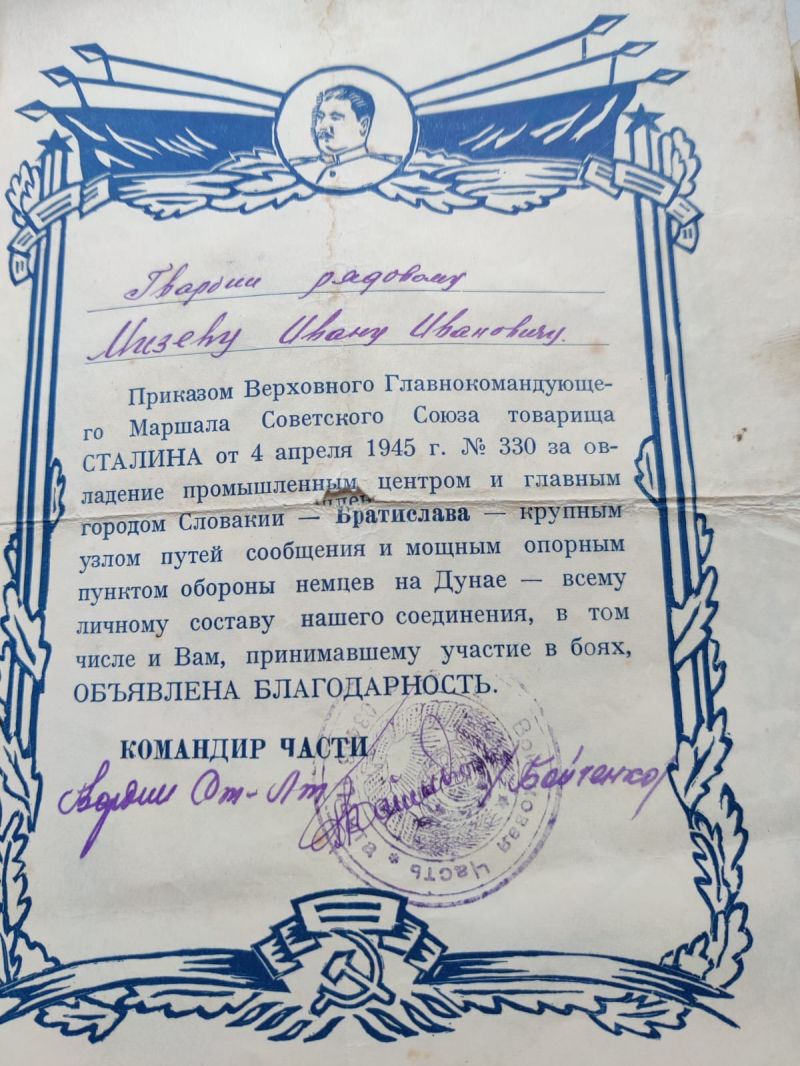 Гвардии рядовому
Мизеву Ивану Ивановичу.
Приказом Верховного Главнокомандующе-
го Маршала Советского Союза товарища
СТАЛИНА от 4 апреля 1945 г. № 330 за ов-
ладение промышленным центром и главным
городом Словакии — Братислава — крупным
узлом путей сообщения и мощным опорным
пунктом обороны немцев на Дунае — всему
личному составу нашего соединения, в том
числе и Вам, принимавшему участие в боях,
ОБЪЯВЛЕНА БЛАГОДАРНОСТЬ.
КОМАНДИР ЧАСТИ
Гвардии Ст-Лт /Бойченко/
Войсковая Часть